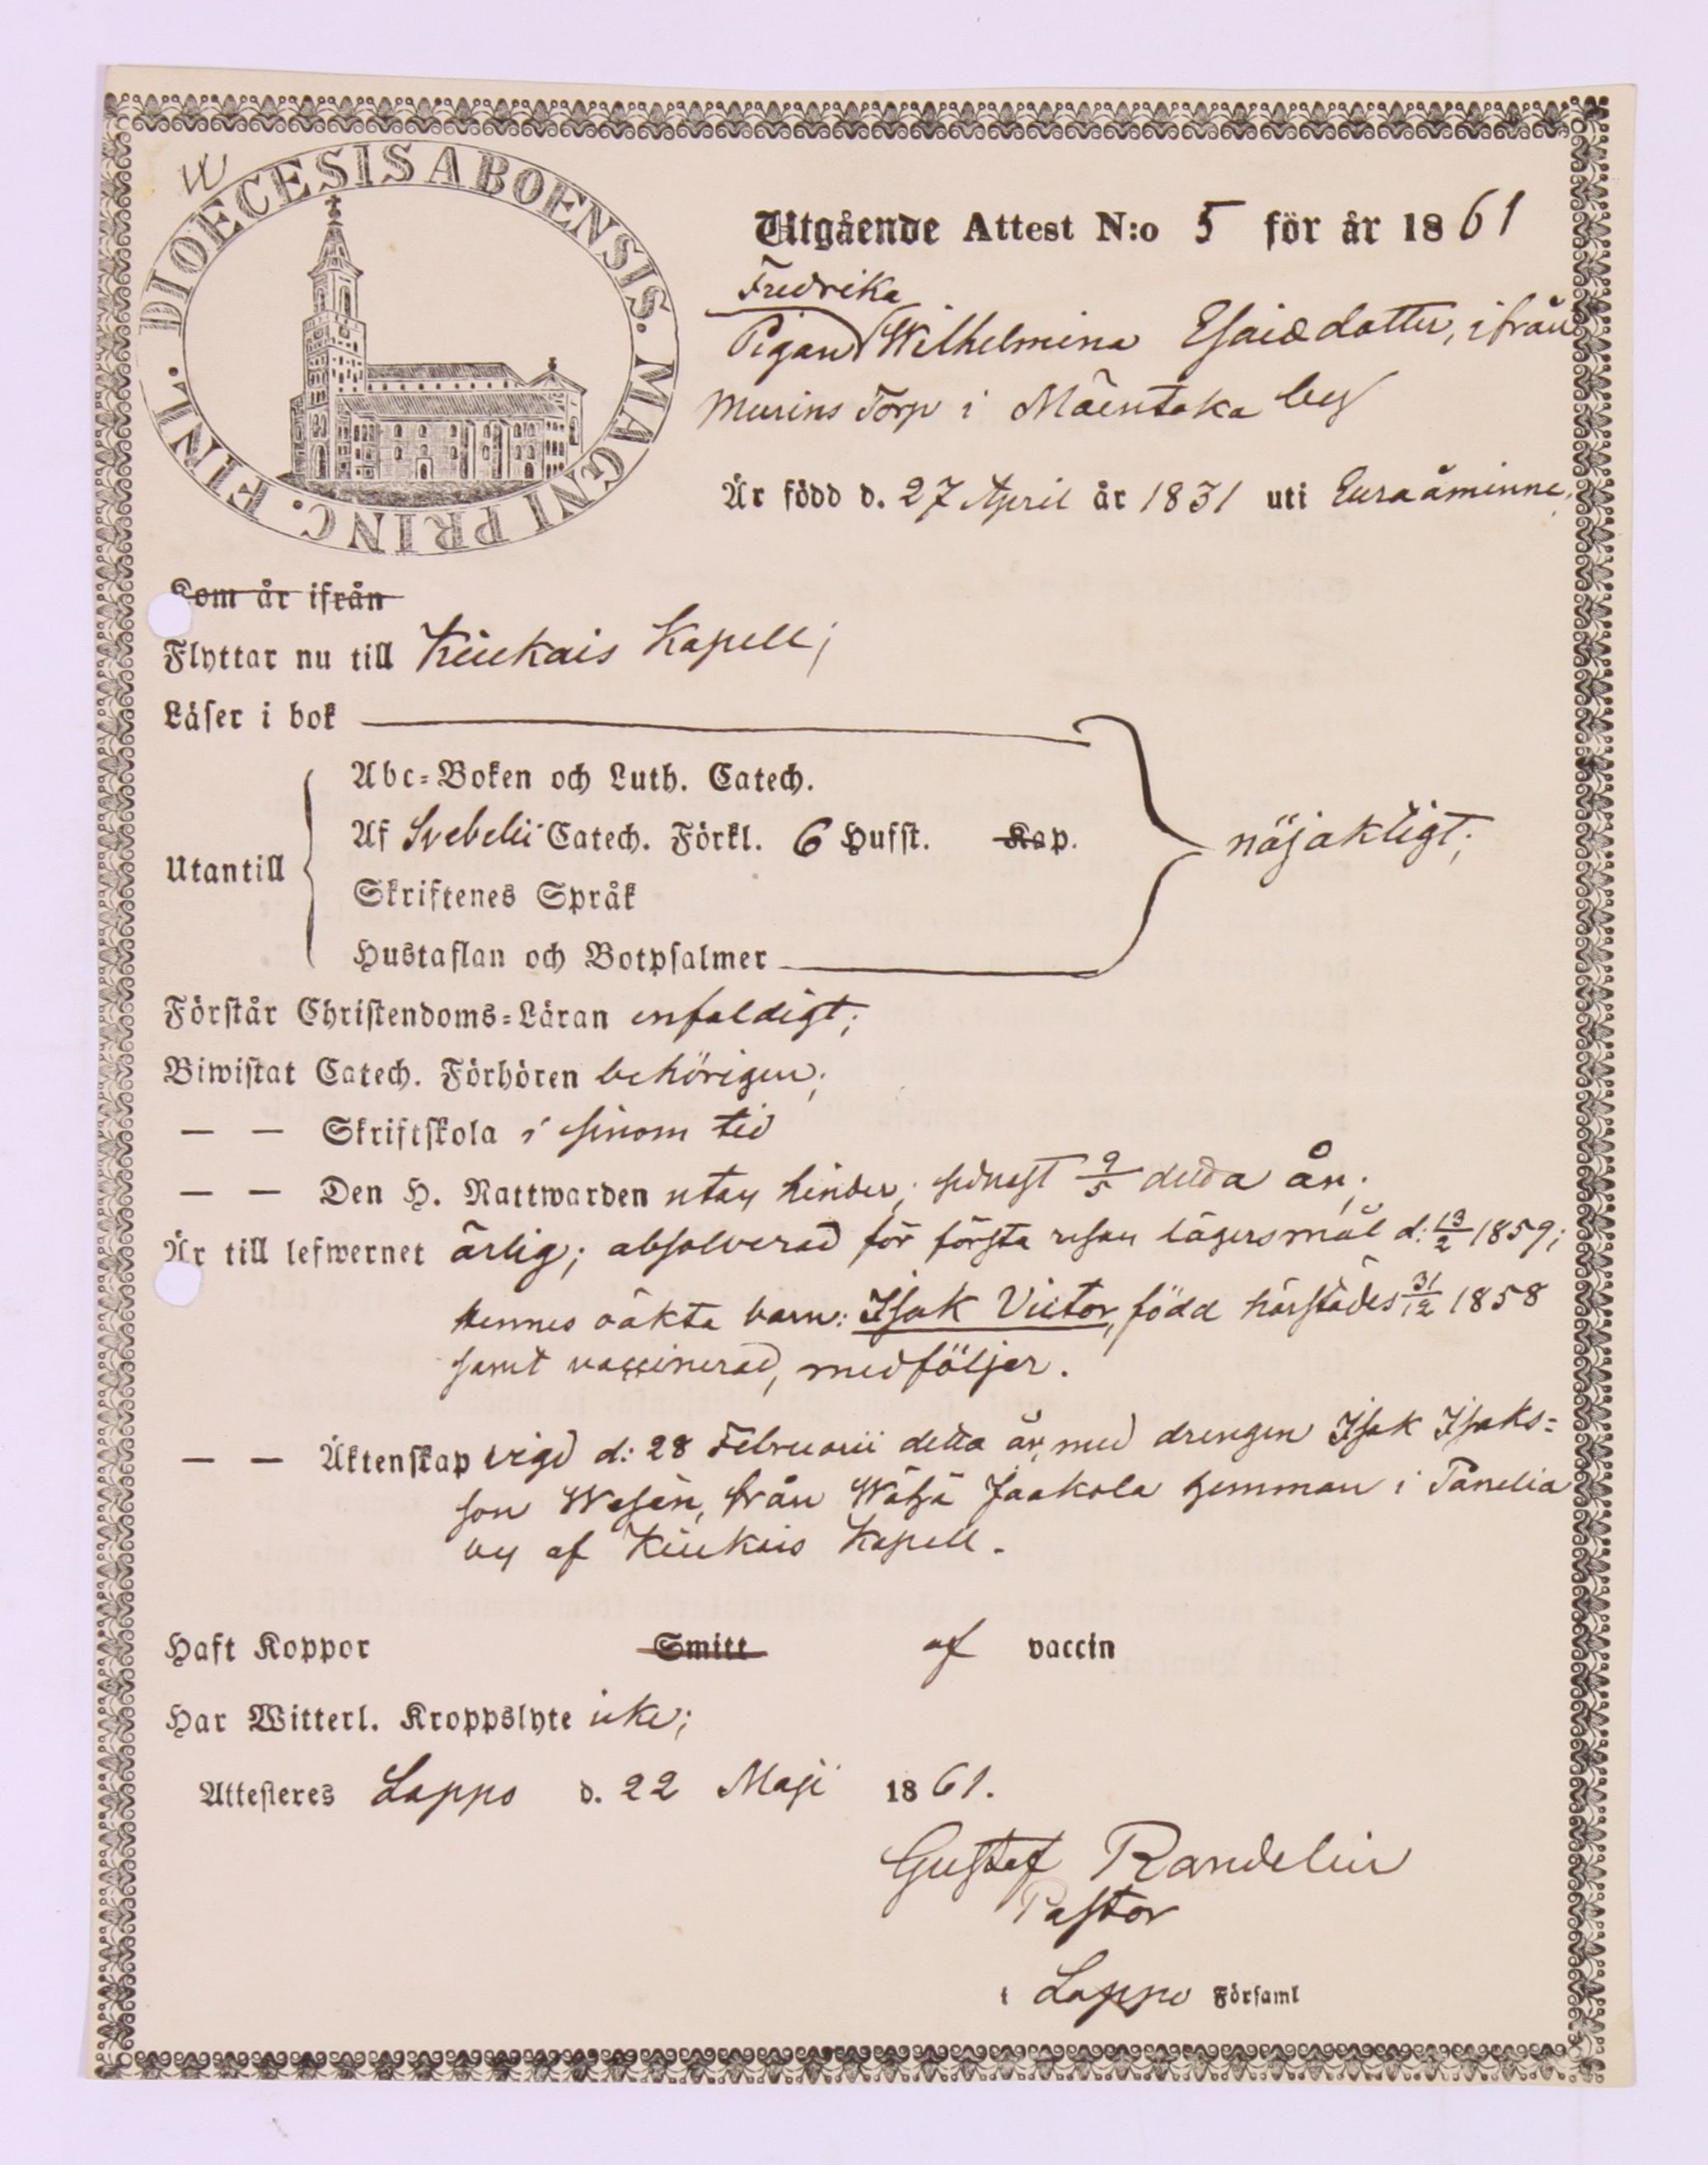 DIOECESIS ABOENSIS. MAGNI PRINC. FINL.
Utgående Attest N:o 5 för år 1861
Fredrika
Pigan Wilhelmina Esaiædotter, ifrån
Murins Torp i Mäentaka by
Är född d. 27 April år 1831 uti Euraåminne,
Kom år ifrån
Flyttar nu till Kiukais Kapell;
Läser i bok
Abc=Boken och Luth. Catech.
Af Svebelii Catech. Förkl. 6 Hufst. Kap.
nöjaktigt;
Utantill
Skriftenes Språk
Hustaflan och Botpsalmer
Förstår Christendoms=Läran enfaldigt;
Biwistat Catech. Förhören behörigen;
— — Skriftskola i sinom tid
— — Den H. Nattwarden utan hinder; sednast 9/5 detta år;
Är till lefwernet ärlig; absolverad för första resan lägersmål d: 13/2 1859;
hennes oäkta barn: Isak Victor, född härstädes 31/12 1858
samt vaccinerad, medföljer.
— — Äktenskap vigd d: 28 Februarii detta år, med drengen Isak Isaks=
son Wesén, från Wähä Jaakola hemman i Panelia
by af Kiukais Kapell.
Haft Koppor Smitt af vaccin
Har Witterl. Kroppslyte icke;
Attesteres Lappo d. 22 Maji 1861.
Gustaf Randelin
Pastor
i Lappo Församl